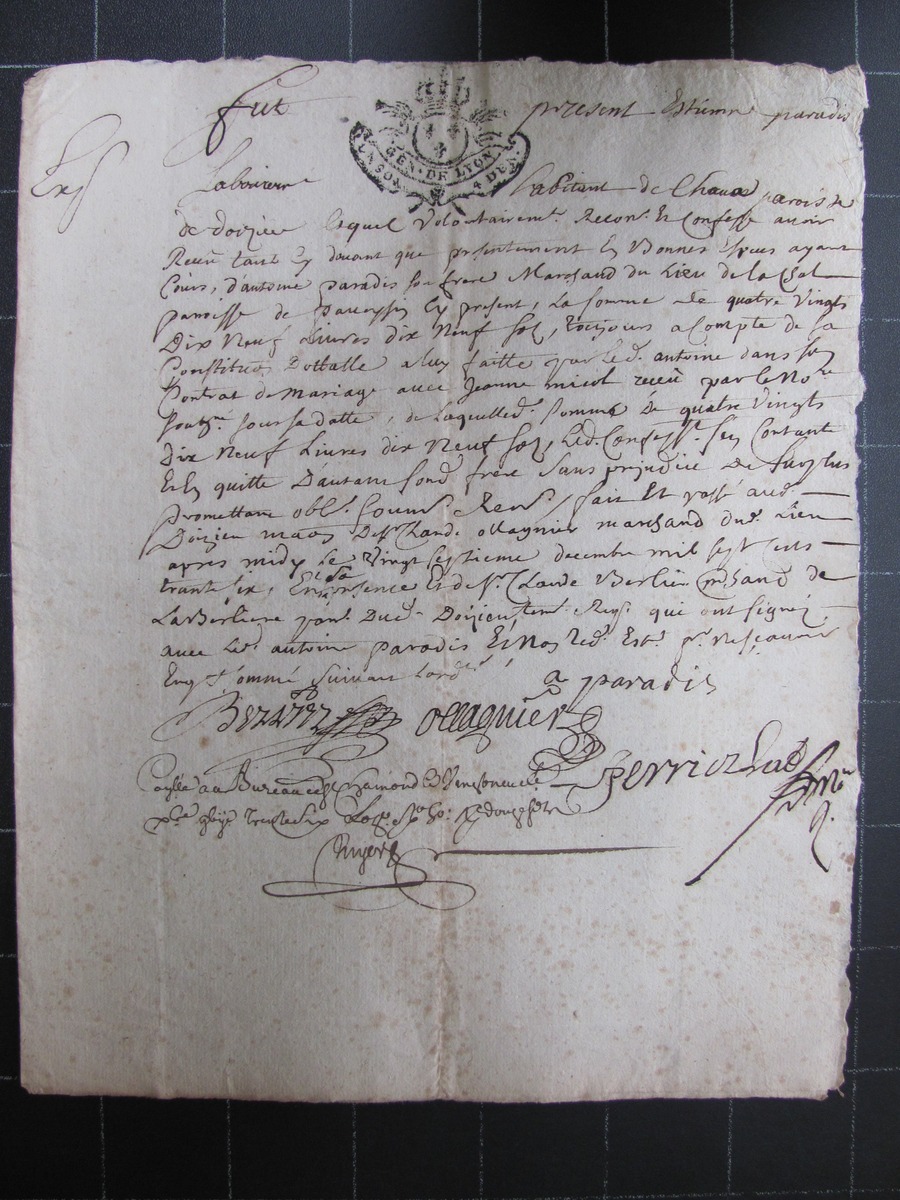 Fut present Estienne paradis
GEN · DE LYON
UN SOL 4 DEN
Laboureur habitant de Chavas parroisse
de doizieu lequel Volontairemt. Recon. Et Confesse avoir
Receu tant cy devant que presentement En Bonnes Espèces ayant
Cours, d'antoine paradis son frere Marchand du Lieu de la
parroisse de Cy present, La somme de quatre Vingts
Dix Neuf Livres dix Neuf sols, toujours a Compte de la
Constitution Dottalle a luy faitte par led. antoine dans son
Contrat de Mariage avec Jeanne micol receu par le Nore
soubsné. sous sa datte, de Laquelle d. somme de quatre Vingts
Dix Neuf Livres dix Neuf sols, Led. Confesst. s'en Contante
Et En quitte D'autant sond. frere sans prejudice du surplus
promettant obl. soum. Ren. fait Et passé aud.
Doizieu maon. De sr. Claude ollagnier marchand dud. Lieu
apres midy Le Vingt septieme decembre mil sept cens
trante six, En presence Et de sr. Claude Berlier mchand de
La Berliere parse. Dud. Doizieu, tem. Reqs. qui ont signé
avec Led. antoine paradis Et Non Led. Este. pr. ne sçavoir
Enqs. Et sommé suivant Lordce.
a paradis
ollagnier
perrichad
Controllé au Bureau de st. chamond Le
trente six Reçu douze sols